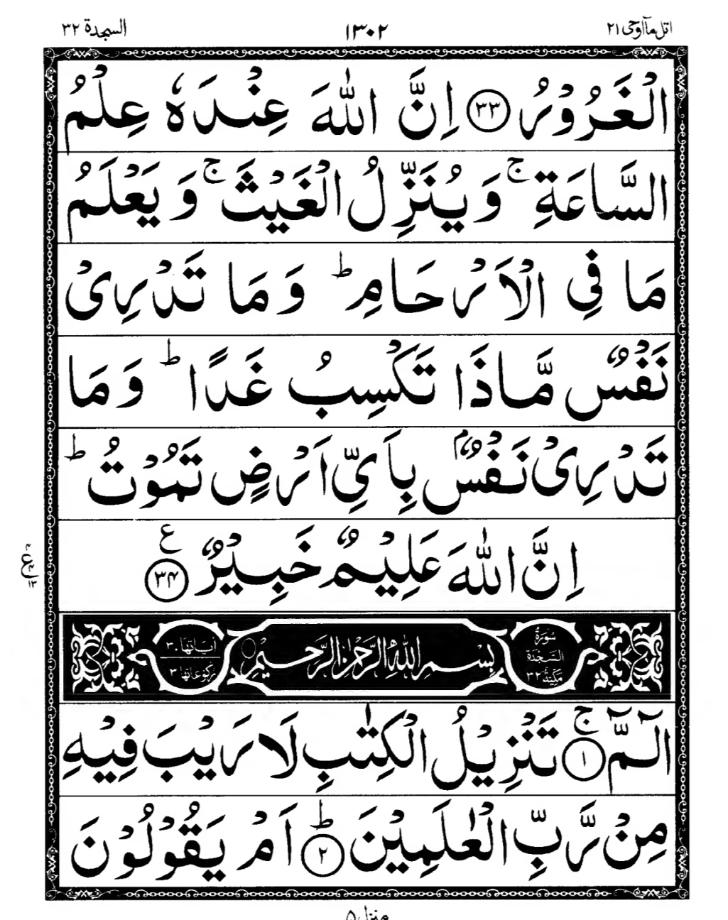 اتل مآ اوحی ۲۱ ۱۳۰۲ السجدة ۳۲
الْغَرُوْرُ ۝۳۳ اِنَّ اللّٰهَ عِنْدَهٗ عِلْمُ
السَّاعَةِ ۚ وَ یُنَزِّلُ الْغَیْثَ ۚ وَ یَعْلَمُ
مَا فِی الْاَرْحَامِ ؕ وَ مَا تَدْرِیْ
نَفْسٌ مَّا ذَا تَكْسِبُ غَدًا ؕ وَ مَا
تَدْرِیْ نَفْسٌۢ بِاَیِّ اَرْضٍ تَمُوْتُ ؕ
اِنَّ اللّٰهَ عَلِیْمٌ خَبِیْرٌ ۝۳۴ ع
سُوْرَةُ السَّجْدَة مَكِّیَّة ۳۲ بِسْمِ اللّٰهِ الرَّحْمٰنِ الرَّحِیْمِ اٰیَاتُهَا ۳۰ رُكُوْعَاتُهَا ۳
الٓمّٓ ۝۱ ۚ تَنْزِیْلُ الْكِتٰبِ لَا رَیْبَ فِیْهِ
مِنْ رَّبِّ الْعٰلَمِیْنَ ۝۲ ؕ اَمْ یَقُوْلُوْنَ
منزل ۵